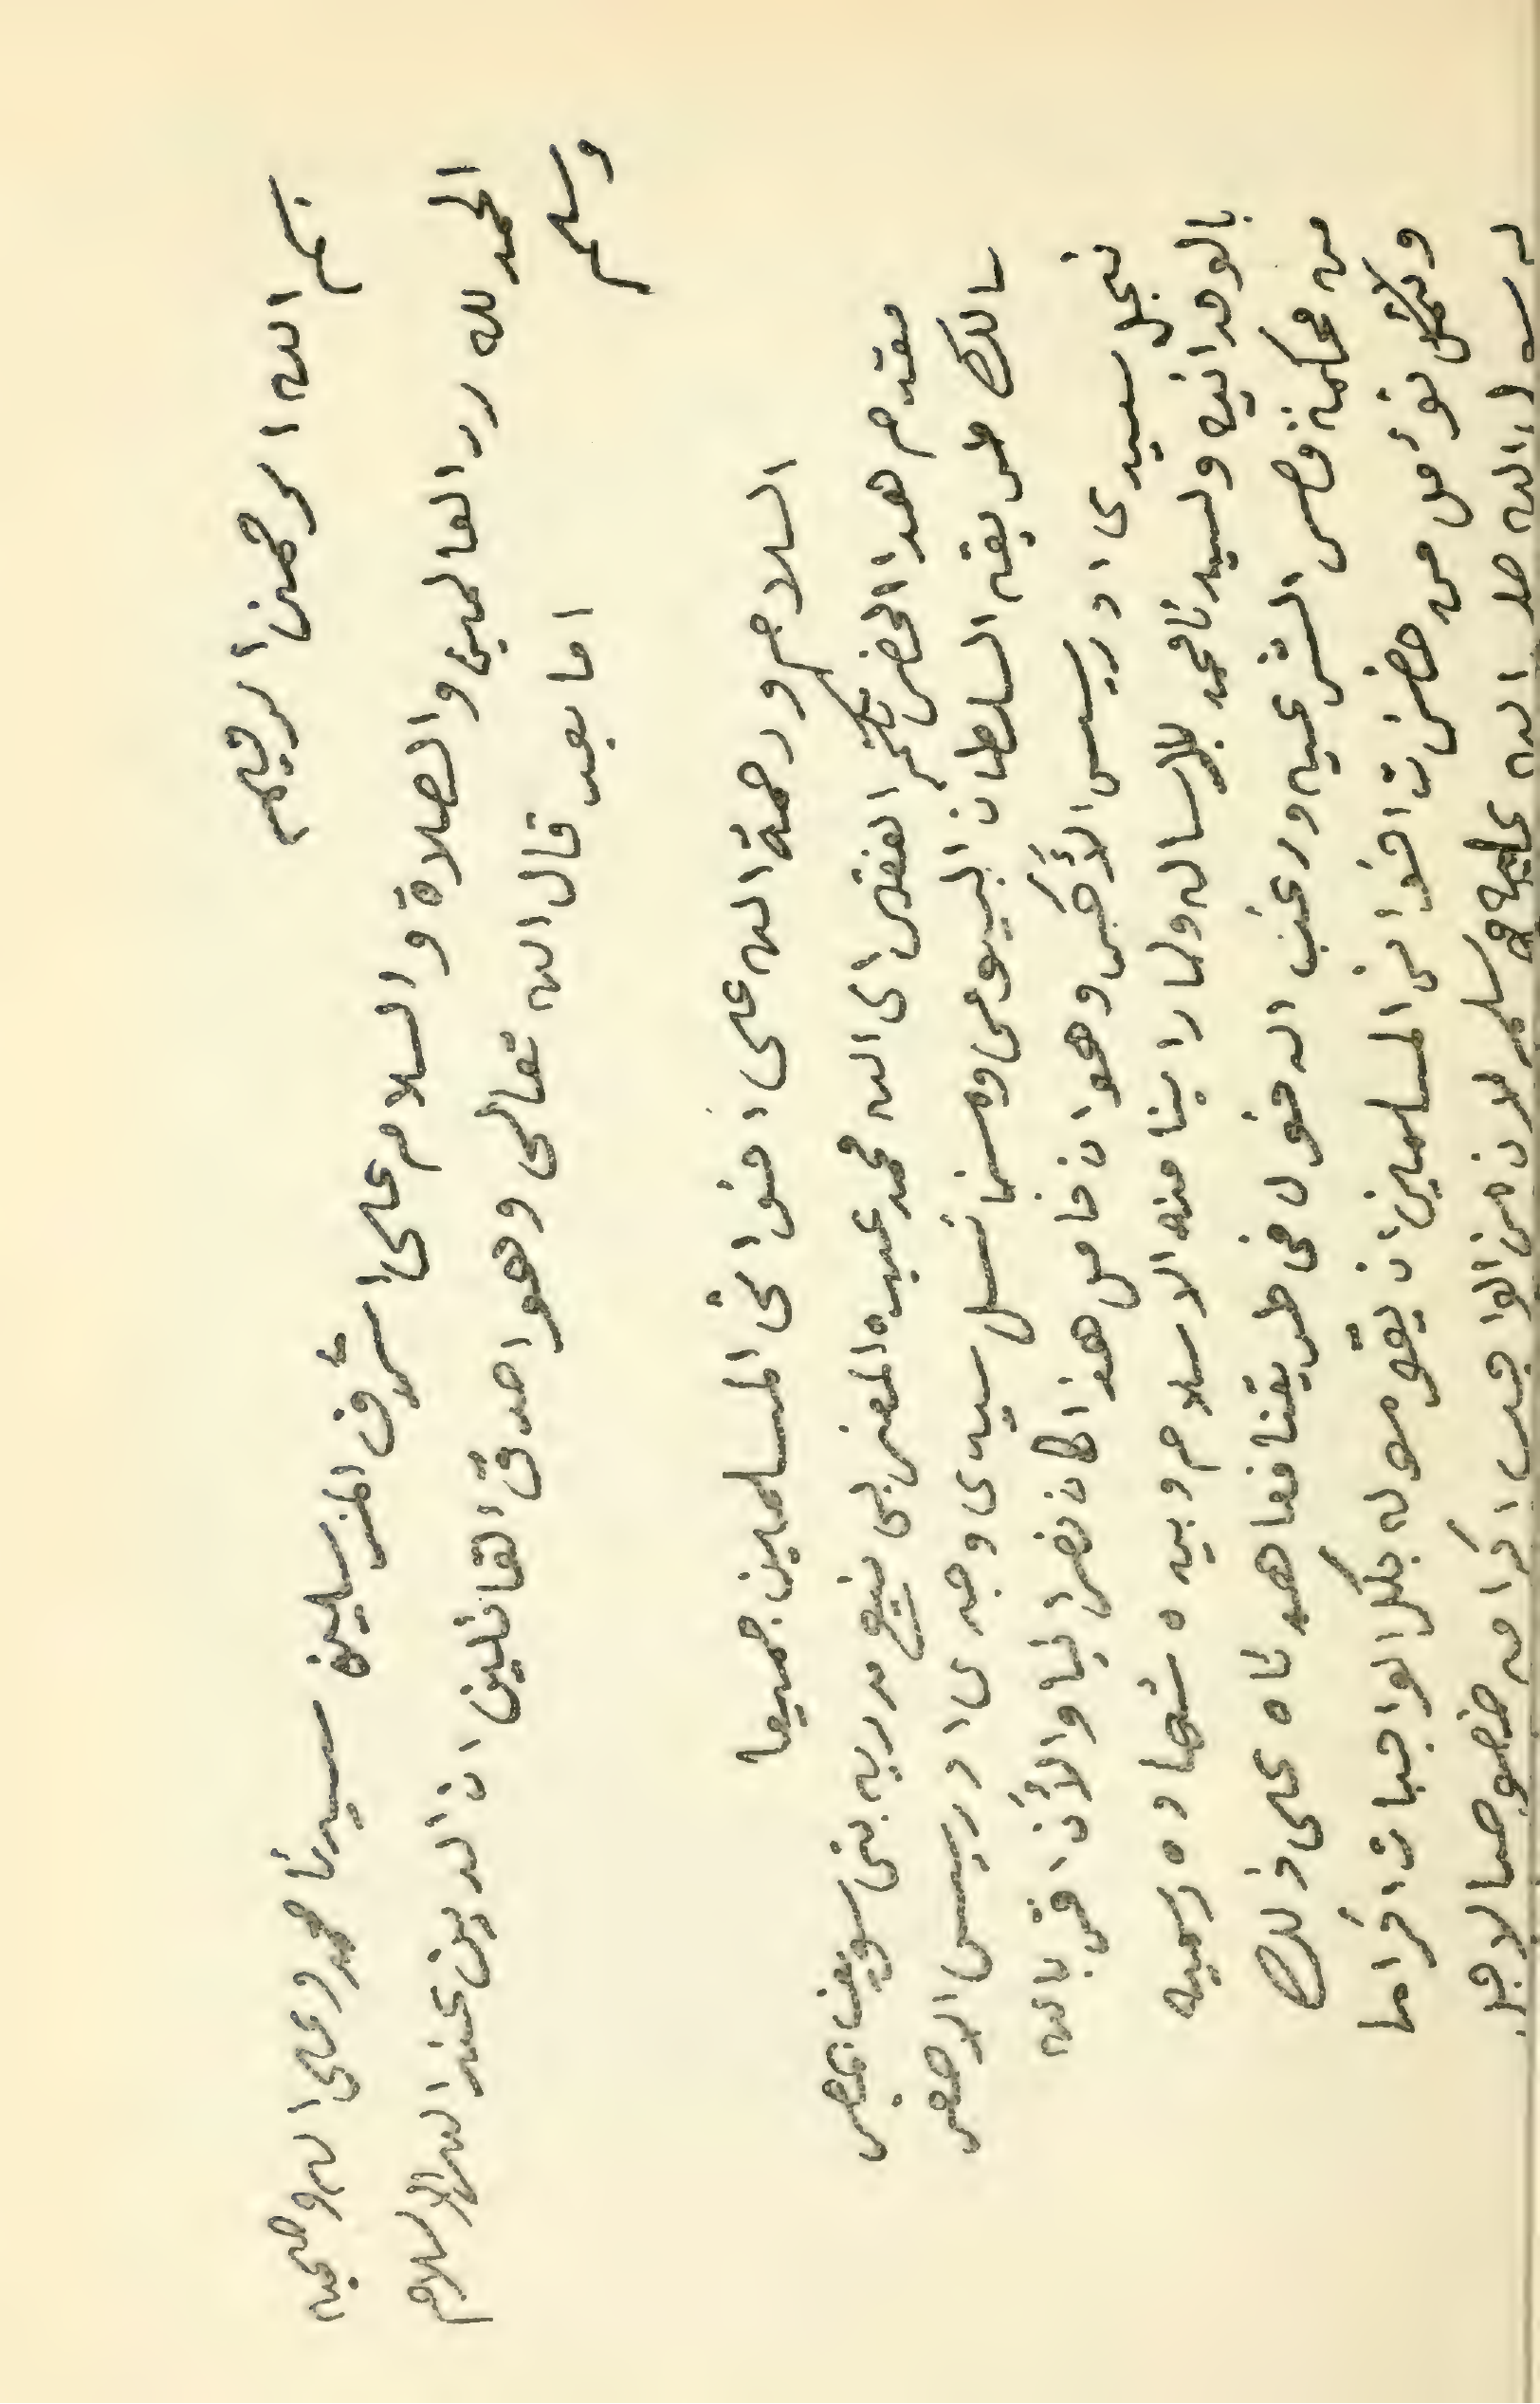 بسم الله الرحمن الرحيم
الحمد لله رب العالمين والصلاة والسلام على اشرف المرسلين سيدنا محمد وعلى اله وصحبه
وسلم
اما بعد قال الله تعالى وهو اصدق القائلين ان الدين عند الله الاسلام
السلام ورحمة الله على اخوانى المسلمين جميعا
مقدم هدا الحضرتكم الفقير الى الله محمد عبيد المغربى شيخ مدريه بنى سويف بمصر
سالك طريقه السلطان البيومى ومنما نسل سيدى وجدى ادريس الاصغر
نجل سيدى ادريس الأكبر وهو ان فامل هذا كان نضرانيا والأن اقر بالله
بالوحدانيه ولسيدنا محمد بالرساله ولما راينا منه الاسلام وبيده شهاده رسميه
من محكمة مصر الشرعيه ورغب الدخول في طريقنا فعاهدناه على ذلك
ونؤمل من حضرات اخوانى المسلمين ان يقوموله بكل الواجبات اكراما
لرسول الله صلى الله عليه وسلم لان من الواجب اكرامه خصوصا لاجل